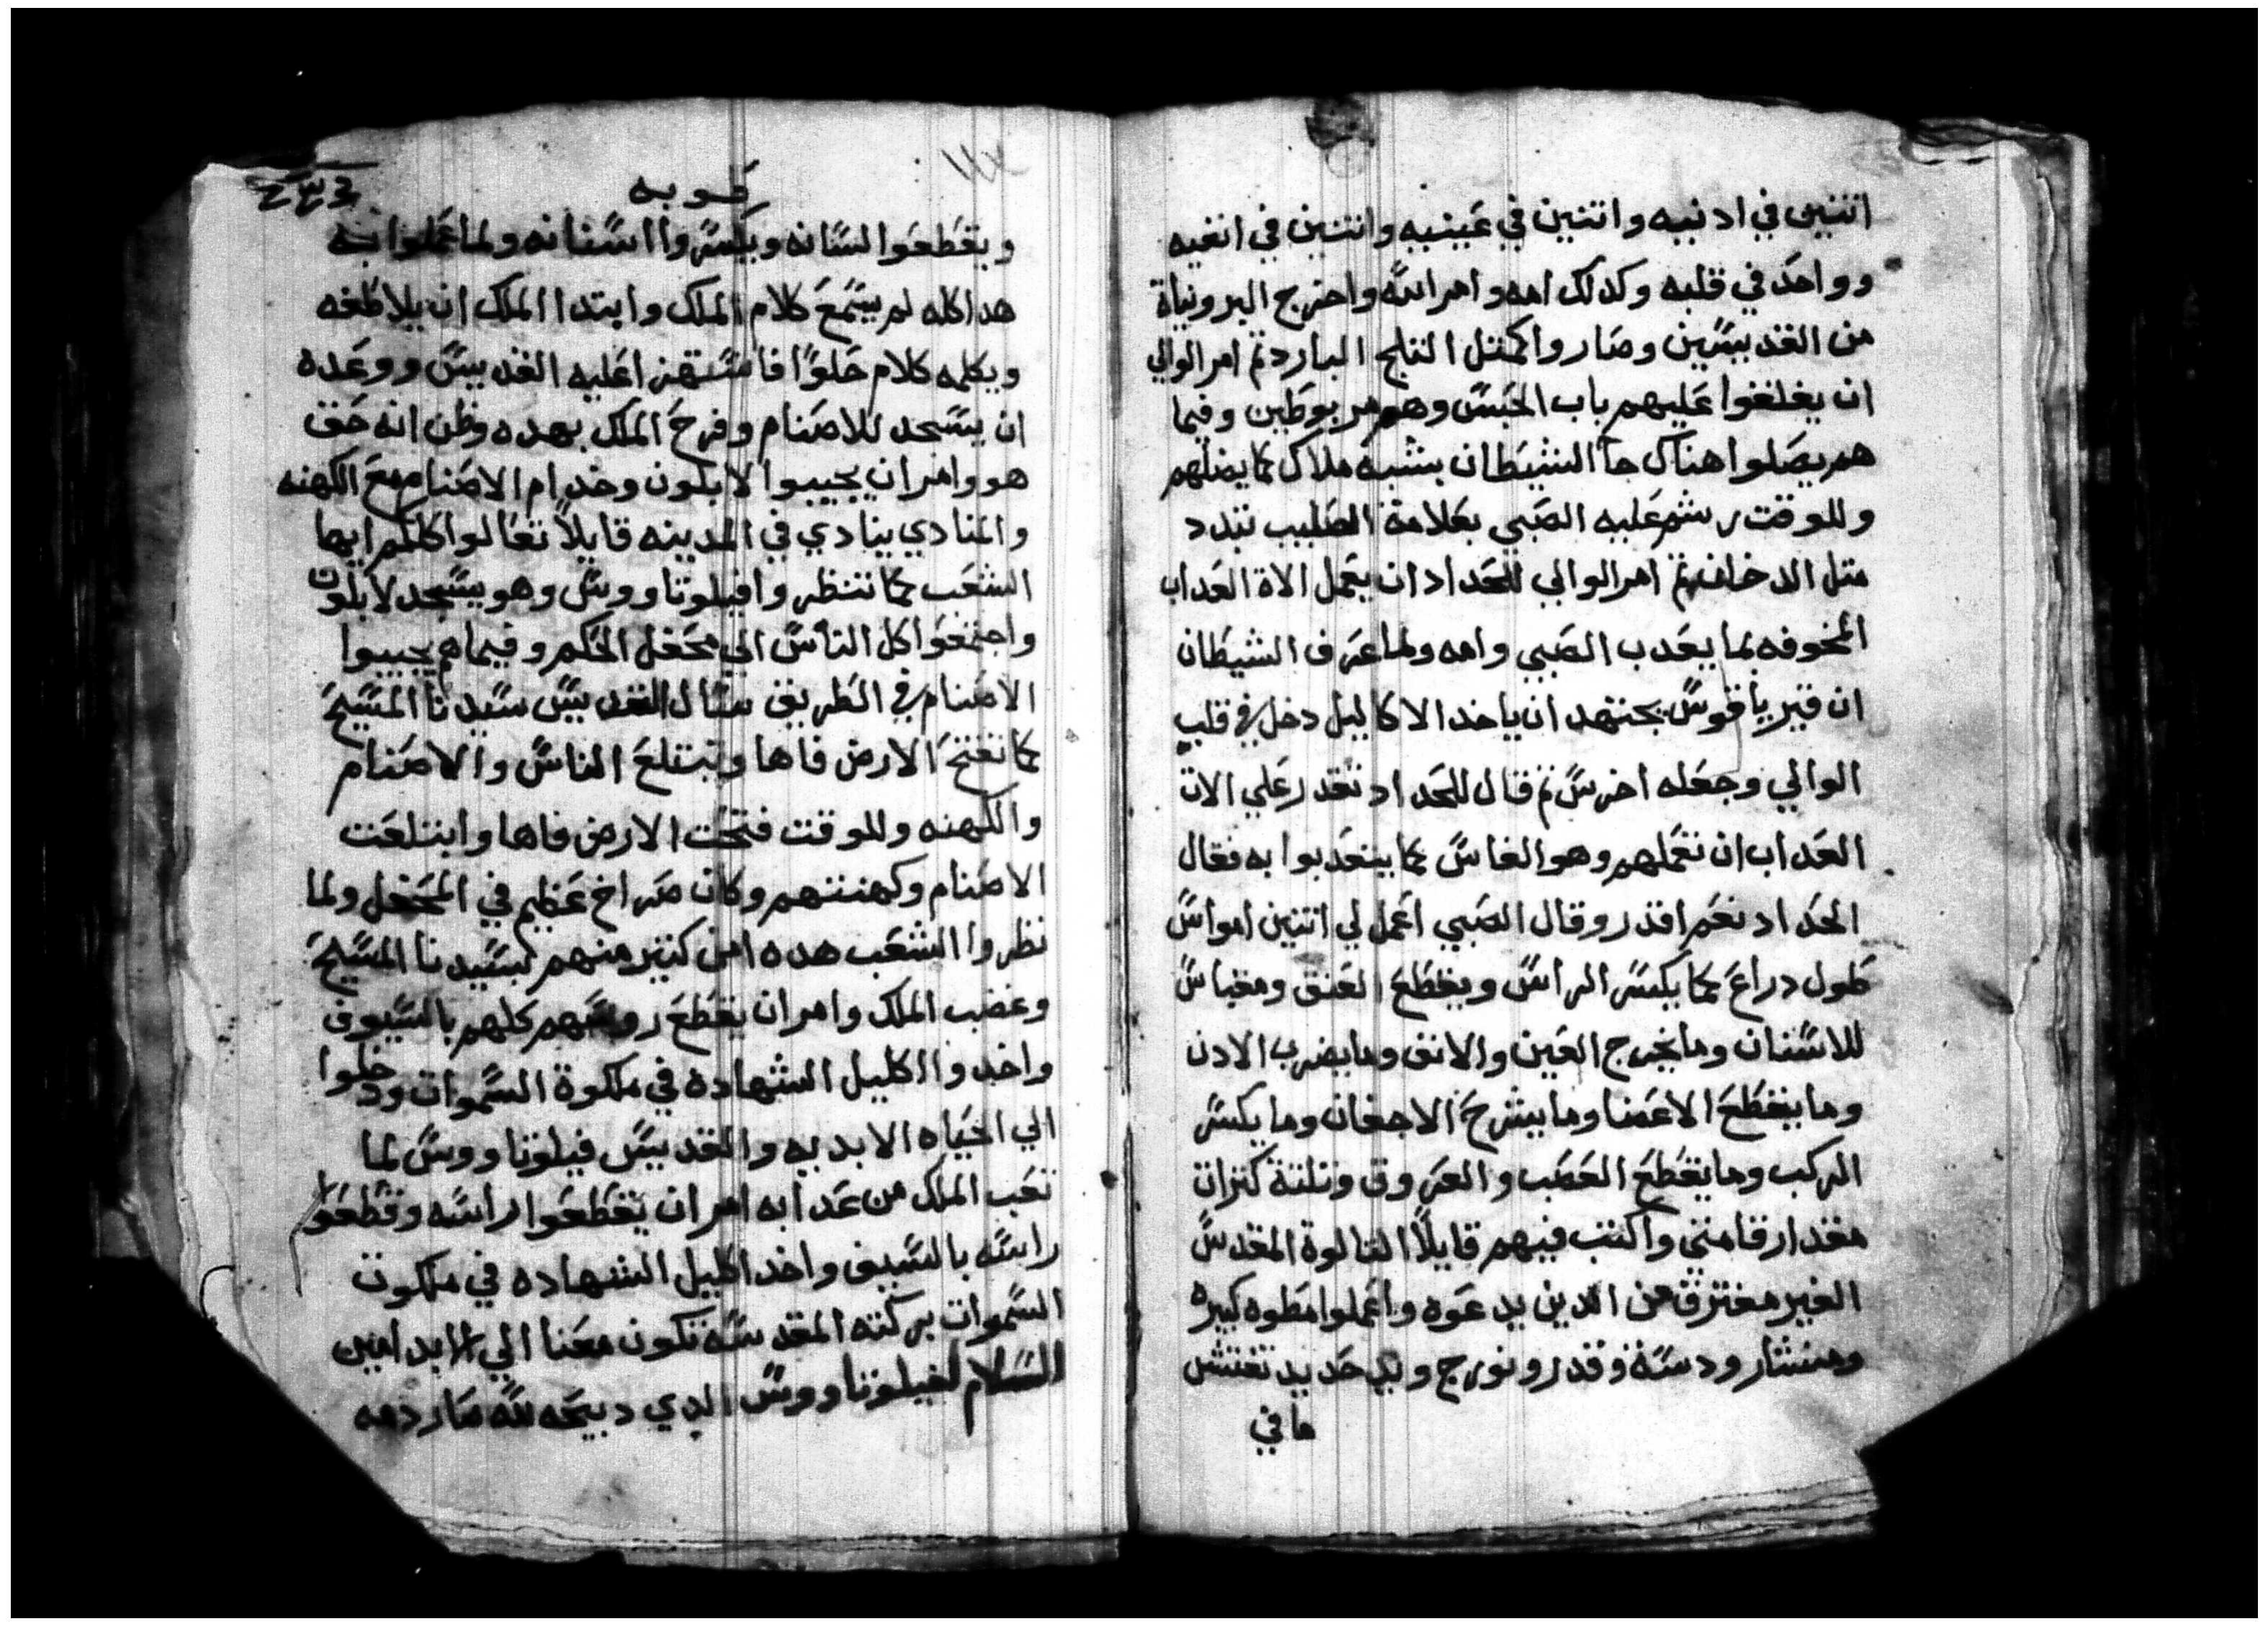 اتنين في ادنيه واتنين في عينيه واتنين في انفيه
وواحد في قلبه وكدلك امه وامر الله واخرج البرونياة
من القديسين وصاروا كمتل التلج البارد تم امر الوالي
ان يغلقوا عليهم باب الحبس وهم مربوطين وفيما
هم يصلوا هناك جا الشيطان بشبه ملاك كما يضلهم
وللوقت رشم عليه الصبي بعلامة الصليب تبدد
متل الدخان تم امر الوالي للحداد ان يعمل الاة العداب
المخوفه بما يعدب الصبي وامه ولما عرف الشيطان
ان قيرياقوس يجتهد ان ياخد الاكاليل دخل في قلب
الوالي وجعله اخرس تم قال للحداد تقدر علي الات
العداب ان تعملهم وهو الفاس كما يتعدبوا به فقال
الحداد نعم اقدر وقال الصبي اعمل لي اتنين امواس
طول دراع كما يكسر الراس ويقطع العنق ومقباس
للاسنان وما يخرج العين والانف وما يضرب الادن
وما يقطع الاعضا وما يشرح الاجفان وما يكسر
الركب وما يقطع العصب والعروق وتلتة كنزان
مقدار قامتي واكتب فيهم قايلا التالوة المقدس
الغير مفترق من الدين يدعوه واعملوا مطوه كبيره
ومنشار ودسة وقدر ونورج ويد حديد تفتش
ما في
رقوبه
ويقطعوا لسانه ويكسروا اسنانه ولما عملوا به
هدا كله لم يسمع كلام الملك وابتدا الملك ان يلاطفه
ويكلمه كلام حلوا فاستهزا عليه القديس ووعده
ان يسجد للاصنام وفرح الملك بهده وظن انه حق
هو وامر ان يجيبوا لابلون وخدام الاصنام مع الكهنه
والمنادي ينادي في المدينه قايلا تعالوا كلكم ايها
الشعب كما تنظروا فيلوتاووس وهو يسجد لابلون
واجتمعوا كل الناس الي محفل الحكم وفيما هم يجيبوا
الاصنام في الطريق سال القديس سيدنا المسيح
كما تفتح الارض فاها وتبتلع الناس والاصنام
والكهنه وللوقت فتحت الارض فاها وابتلعت
الاصنام وكهنتهم وكان صراخ عظيم في المحفل ولما
نظروا الشعب هده امن كتير منهم بسيدنا المسيح
وغضب الملك وامر ان يقطع روسهم كلهم بالسيوف
واخدوا اكليل الشهاده في ملكوة السموات ودخلوا
الي الحياه الابديه والقديس فيلوتاووس لما
تعب الملك من عدابه امر ان يقطعوا راسه وقطعوا
راسه بالسيف واخد اكليل الشهاده في ملكوت
السموات بركته المقدسه تكون معنا الي الابد امين
السلام لفيلوتاووس الدي دبيحه لله صار دمه